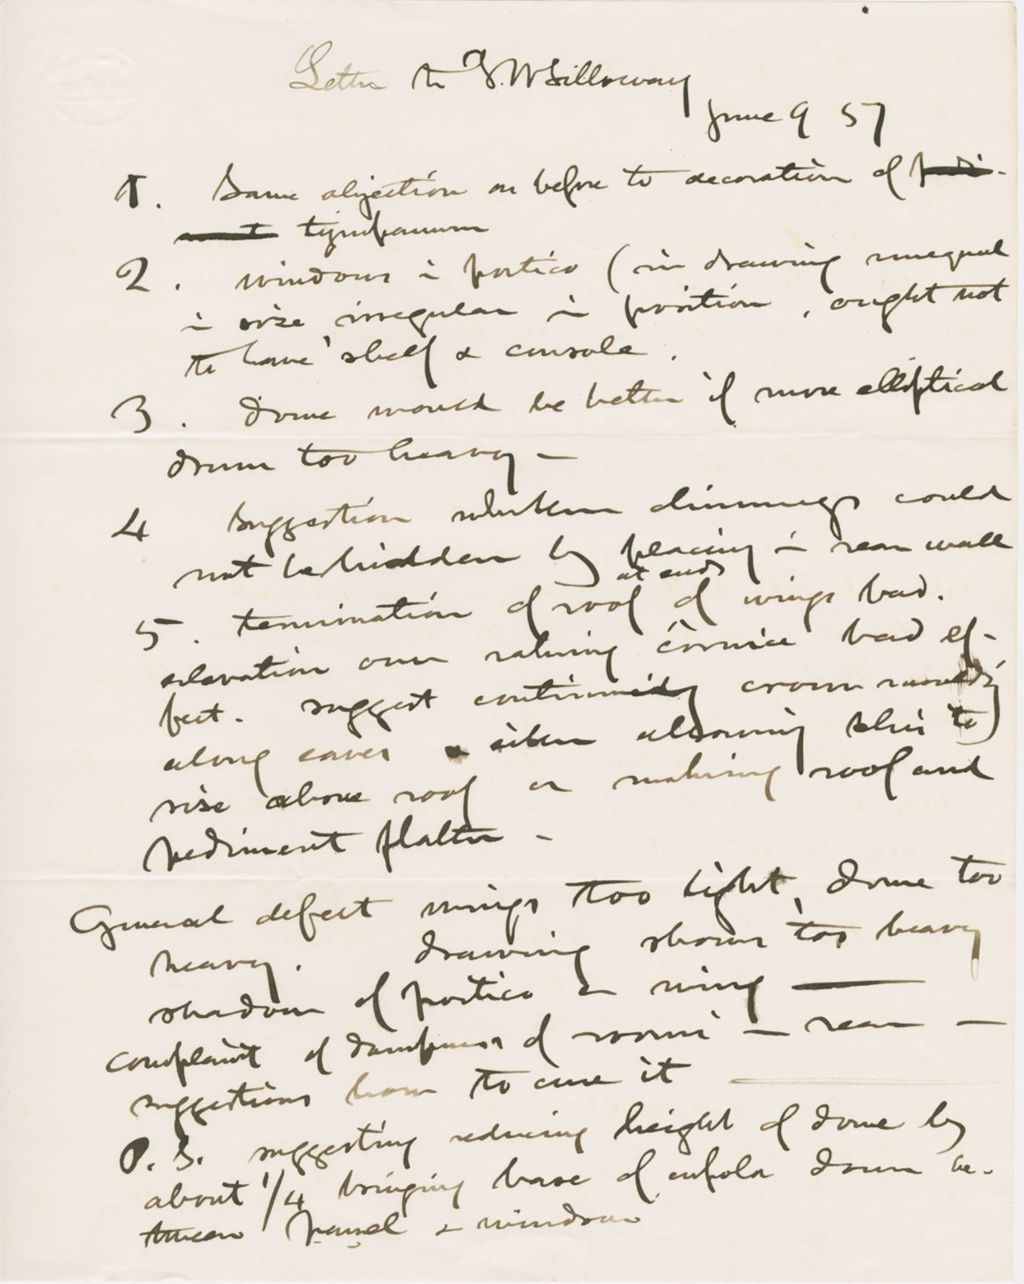 Letter to T. W. Silloway
June 9 57
1. Same objection as before to decoration of pedi-
ment tympanum
2. windows in portico (in drawing unequal
in size irregular in position, ought not
to have shelf & console.
3. Dome would be better if more elliptical
drum too heavy —
4 Suggestion whether chimneys could
not be hidden by placing in rear wall
at ends
5. termination of roof of wings bad.
elevation over raking cornice bad ef-
fect. suggest continuing crown moulding
along eaves & either allowing this to
rise above roof or making roof and
pediment flatter —
General defect wings too light, dome too
heavy. drawing shows too heavy
shadow of portico on wing —
complaint of dampness of rooms in rear —
suggestions how to cure it —
P.S. suggesting reducing height of dome by
about 1/4 bringing base of cupola down be-
tween panel & window